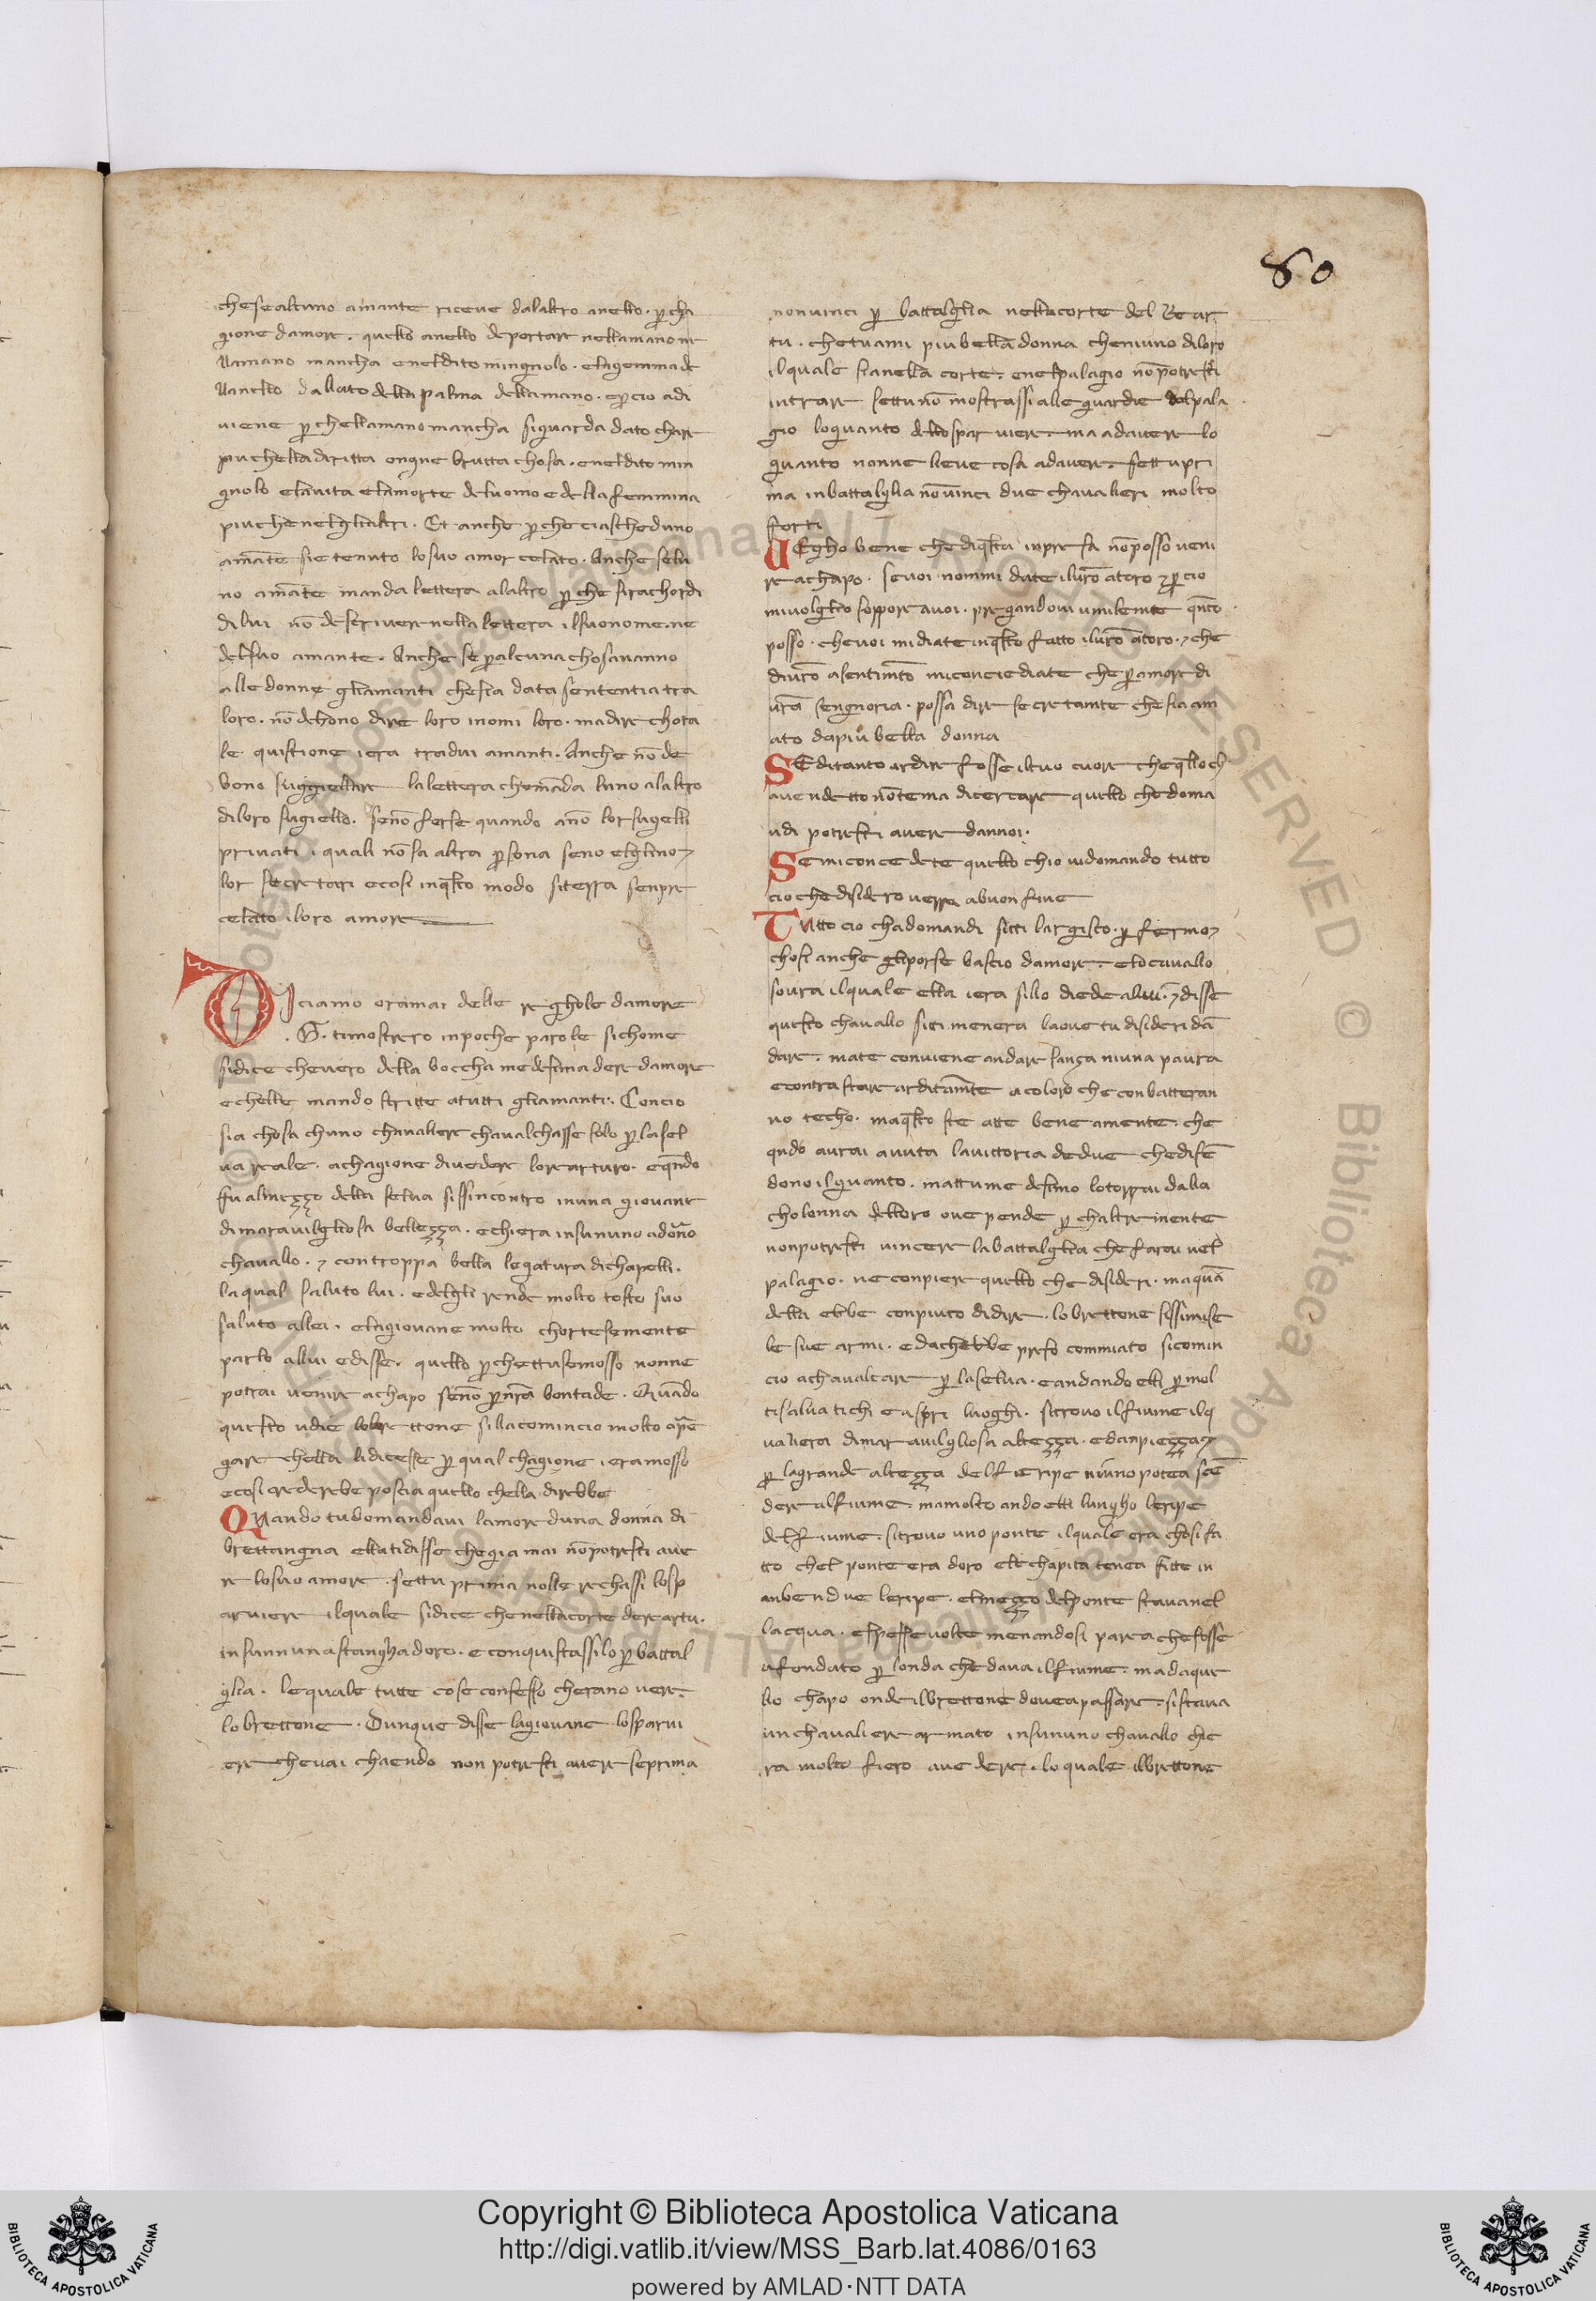 80
che se alcuno amante riceve dalaltro anello · p̄ cha
gione damore · quello anello de portare nella mano m̄
llamano mancha e nel dito mingnolo · e la gemma de
llanello dallato della palma della mano · e p̄ cio adi
viene p̄ che lla mano mancha si guarda dato chare
piu che lla diritta ongne brutta chosa · e nel dito min
gnolo e la vita e la morte del uomo e della femmina
piu che negli altri · Et anche p̄ che ciascheduno
amāte sie tenuto lo suo amor celato · Anche se lu
no amāte manda lettera alaltro p̄ che si rachordi
di lui nō de scrivere nella lettera il suo nome · ne
del suo amante · Anche se p̄ alcuna chosa vanno
alle donne gliamanti che sia data sententia tra
loro · nō debono dire loro i nomi loro · ma dire chota
le quistione iera tra dui amanti · Anche nō de
bono suggiellare la lettera che māda luno alaltro
di loro sugiello · se nō forse quando ano lor sugelli
privati i quali nō sa altra p̄sona se no eglino ⁊
lor secretari e cosi in q̄sto modo si terra senpre
celato i loro amore
Diciamo oramai delle reghole damore
· G · ti mostrero in poche parole si chome
si dice che vero della boccha medesima de re damore
e chelle mando scritte a tutti gliamanti · Concio
sia chosa chuno chavaliere chavalchasse solo p̄ la sel
va reale · a chagione di vedere lo re arturo · e qn̄do
fu al mezzo della selva si ssincontro in una giovane
di maravilgliosa bellezza · e chi era in su nuno adorno
chavallo · ⁊ con troppa bella legatura di chapelli ·
la qual saluto lui · ed elgli rende molto tosto suo
saluto allei · e la giovane molto chortesemente
parlo allui e disse · quello p̄ che ttu se mosso nonne
potrai venire a chapo se nō p̄ nr̄a bontade · Quādo
questo udie lo brettone si lla comincio molto a p̄e
gare chella li dicesse p̄ qual chagione i era mosso
e cosi crederebe poscia quello chella direbbe
Quando tu domandavi lamore duna donna di
brettangna ella ti disse che gia mai nō potresti ave
re lo suo amore · settu prima nolle rechassi lo sp
arviere il quale si dice che nella corte de re artu ·
in su nuna stangha doro · e conquistassilo p̄ battal
glia · le quale tutte cose confesso cherano vere ·
lo brettone · Dunque disse la giovane lo sparvi
ere che vai chaendo non potresti avere se prima
non vinci p̄ battalglia nella corte del Re ar
tu · che tu ami piu bella donna che niuno di loro
il quale sia nella corte · e nel palagio nō potresti
intrare se ttu nō mostrassi alle guardie del pala
gio lo guanto dello sparviere · ma ad avere lo
guanto nonne lieve cosa ad avere · se ttu pri
ma in battalglia nō vinci due chavalieri molto
forti
Vegho bene che di q̄sta inpresa nō posso veni
re a chapo · se voi nommi date il vr̄o atoro ⁊ p̄ cio
mi volglio sopporre a voi · pregandovi umilemte qn̄to
posso · che voi mi diate in q̄sto fatto il vr̄o atoro · ⁊ che
di vr̄o asentimto mi concediate che p̄ amore di
vr̄a sengnoria · possa dire secretamte che sia am
ato da piu bella donna
Se di tanto ardire fosse il tuo cuore che q̄llo ch
avendetto nō tema di cercare quello che doma
ndi potresti avere dannoi ·
Se mi concedete quello chio vi domando tutto
cio che disidero verra a buon fine
Tutto cio cha domandi sitti largisco · p̄ fermo ⁊
chosi anche gli porse bascio damore · e lo cavallo
soura il quale ella iera si llo diede a lui · ⁊ disse
questo chavallo sitti menera la ove tu disideri dā
dare · ma te conviene andare sanza niuna paura
e contrastare arditamēte a coloro che conbatteran
no techo · ma q̄sto ste atte bene a mente · che
qn̄do avrai avuta la vittoria de due che difē
dono il guanto · ma ttu medesimo lo torrai dalla
cholonna delloro ove pende p̄ chaltremente
non potresti vincere la battalglia che farai nel
palagio · ne conpiere quello che disideri · ma quā
della ebbe conpiuto di dire · lo brettone si ssimise
le sue armi · e dachebbe preso commiato si comin
cio a chavalcare p̄ la selva · e andando elli p̄ mol
ti salvatichi e aspri luoghi · si trovo il fiume il q
uale era di maravilgliosa altezza · e danpiezza ⁊
p̄ la grande altezza delle ripe niuno potea scē
dere al fiume · ma molto ando elli lungho le ripe
del fiume · si trovo uno ponte il quale era chosi fa
tto chel ponte era doro e le chapita tenea fitte in
anbendue le ripe · el mezzo del ponte stava nel
lacqua · e spesse volte menandosi parea che fosse
afondato p̄ londa che dava il fiume · ma da que
llo chapo onde il brettone dovea passare · si stava
un chavaliere armato in su nuno chavallo che
ra molto fiero a vedere · lo quale il brettone
Copyright © Biblioteca Apostolica Vaticana
http://digi.vatlib.it/view/MSS_Barb.lat.4086/0163
powered by AMLAD·NTT DATA